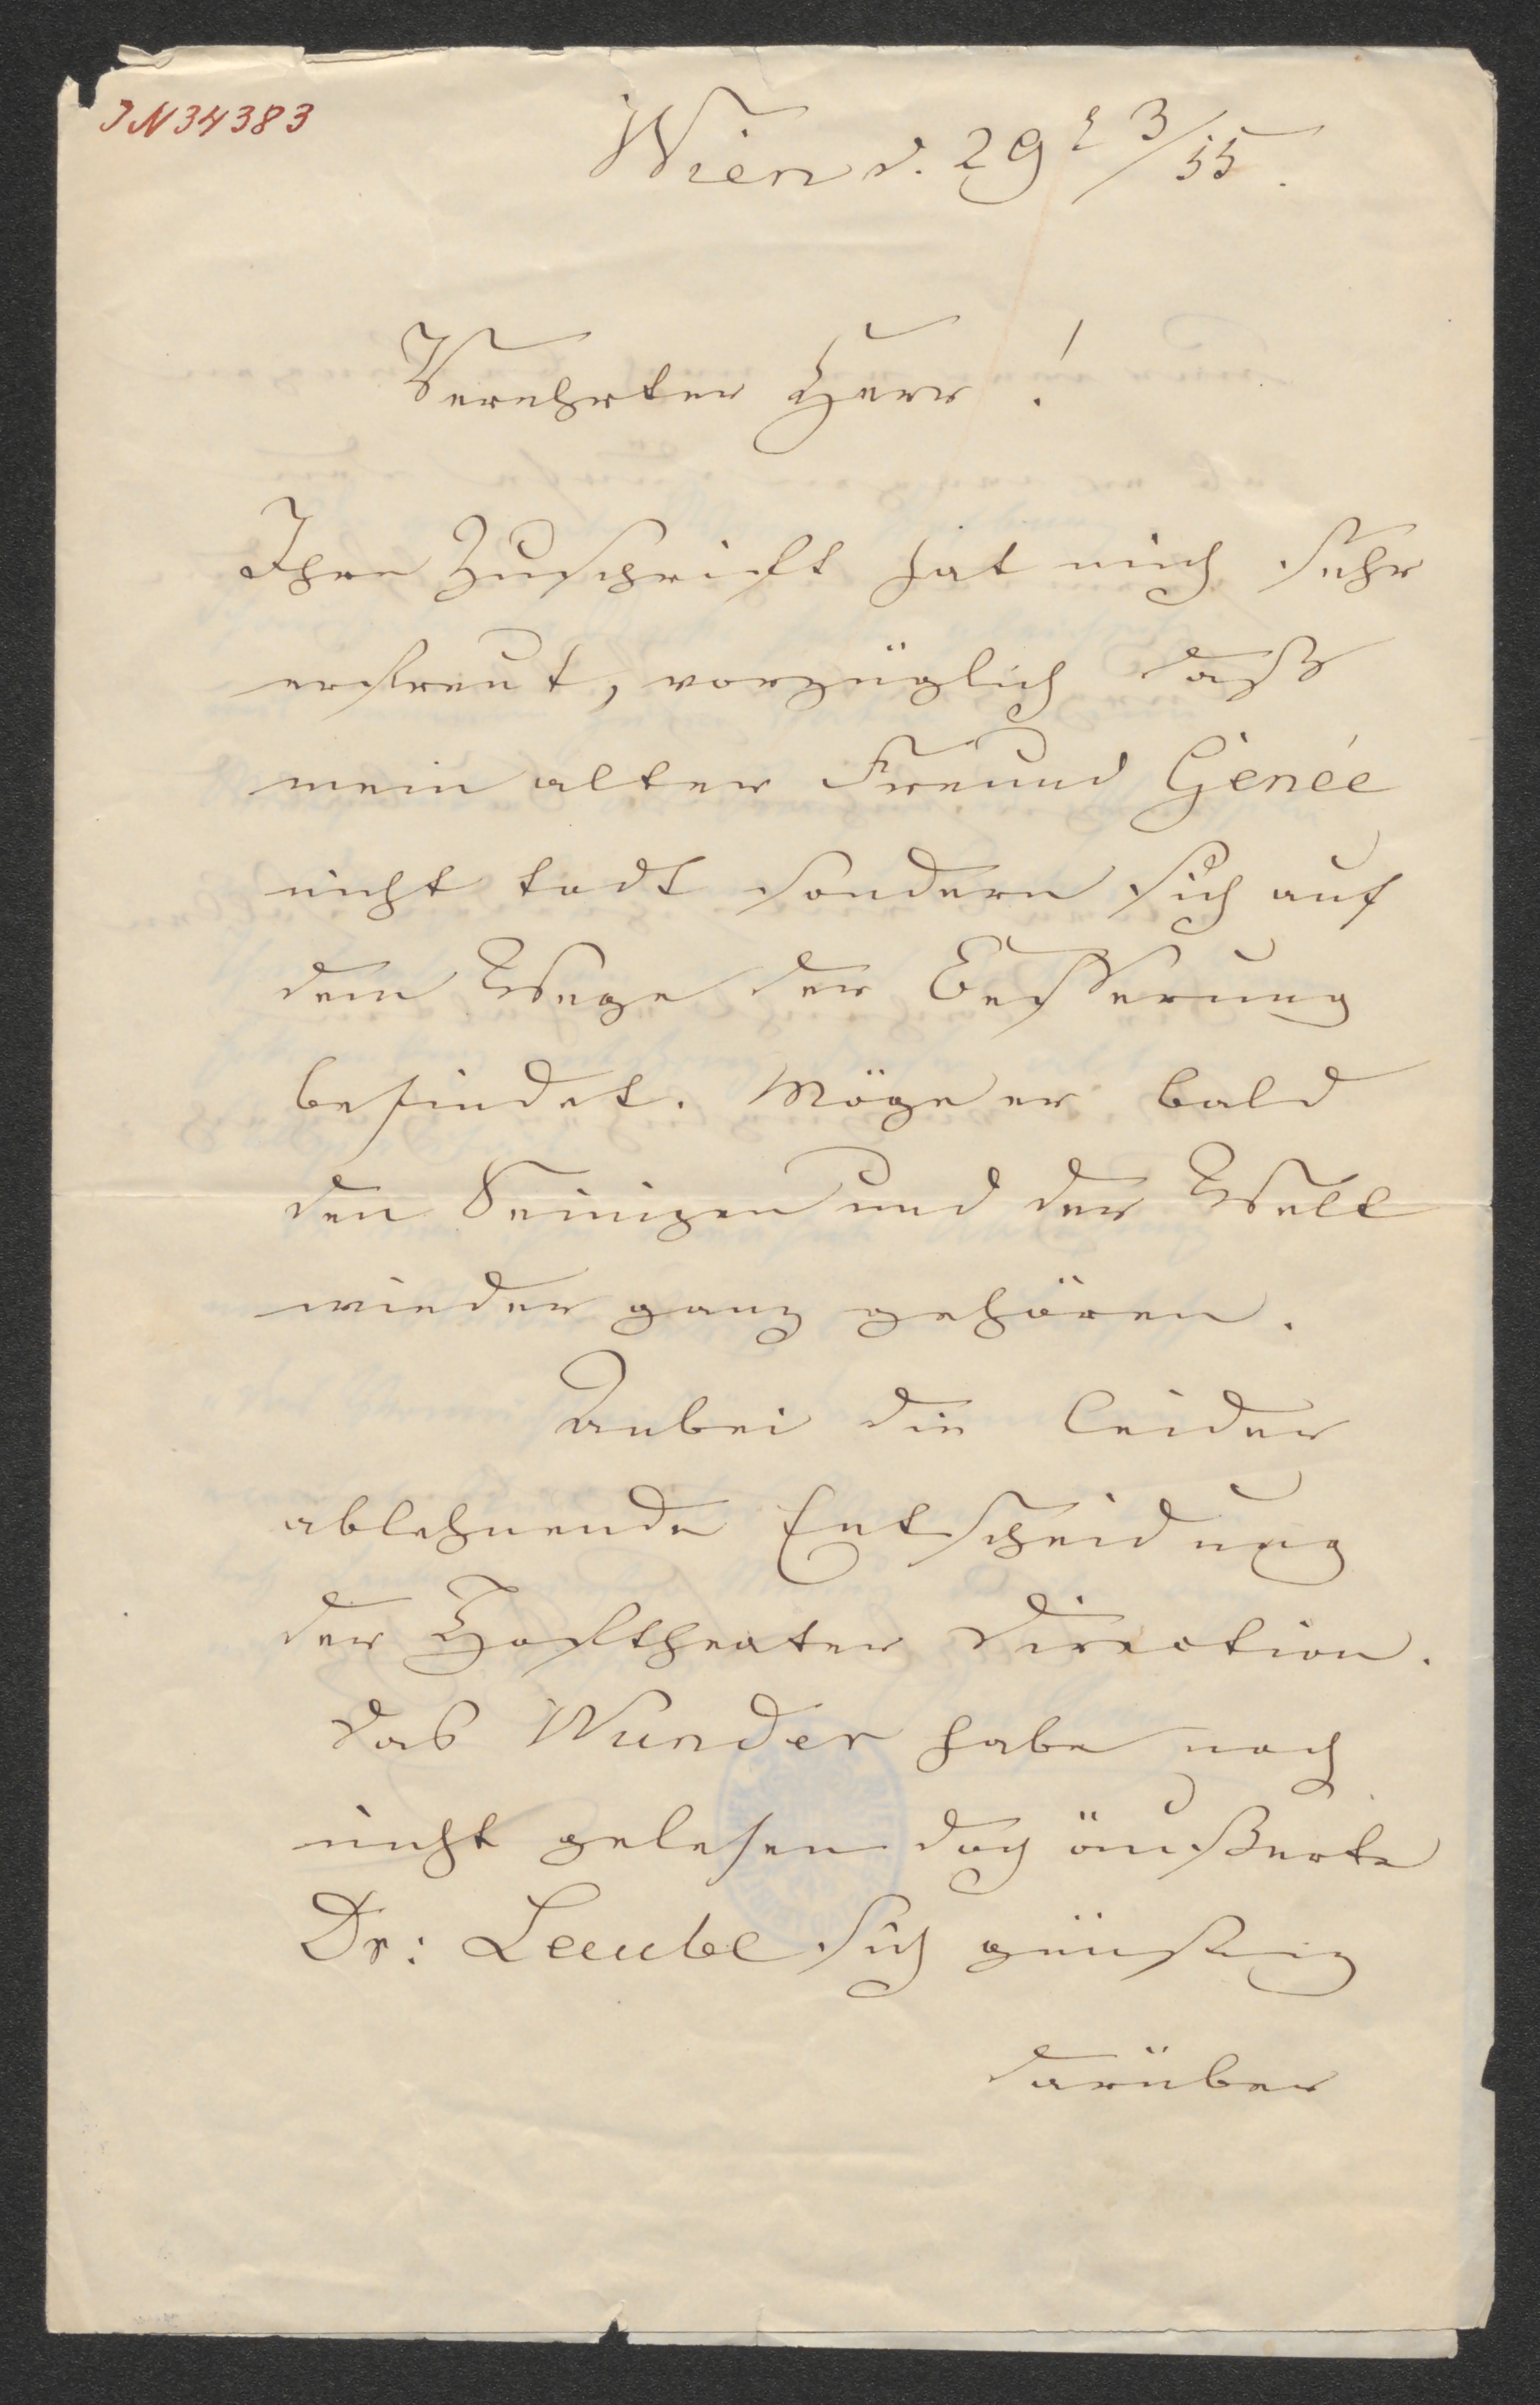 IN 34383
Wien d. 29t 3/55.
Verehrter Herr!
Ihre Zuschrift hat mich sehr
erfreut, vorzüglich daß
mein alter Freund Genée
nicht todt sondern sich auf
dem Wege der Besserung
befindet. Möge er bald
den Seinigen und der Welt
wieder ganz gehören.
Anbei die leider
ablehnende Entscheidung
der Hoftheater Direction.
Das Wunder habe noch
nicht gelesen doch äußerte
Dr: Laube sich günstig
darüber